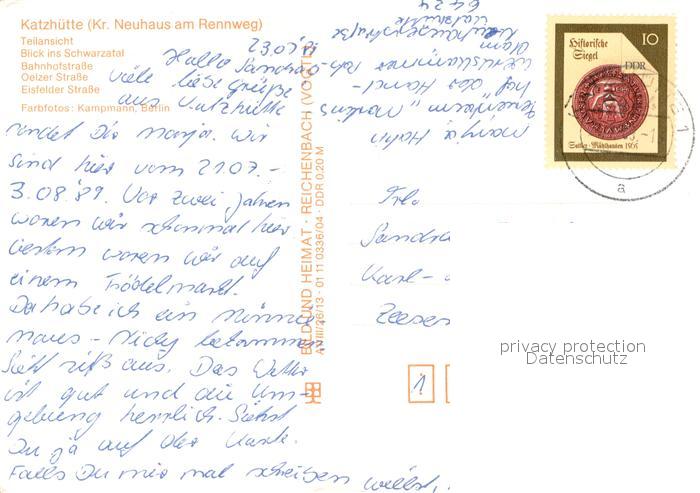 Katzhütte (Kr. Neuhaus am Rennweg)
Teilansicht
Blick ins Schwarzatal
Bahnhofstraße
Oelzer Straße
Eisfelder Straße
Farbfotos: Kampmann, Berlin
23.07.89
Hallo Sandra
viele liebe Grüße
aus Katzhütte
sendet Dir Manja. Wir
sind hier vom 21.07.-
3.08.89. Vor zwei Jahren
waren wir schonmal hier
gestern waren wir auf
einem Trödelmarkt.
Da habe ich ein
maus - Kidy bekommen
Sieht süß aus. Das Wetter
ist gut und die Um-
gebung herrlich. Siehst
Du ja auf der Karte.
Falls Du mir mal schreiben willst,
Manja Hahn
Ferienheim "Markus
hof des Handels
6424
BILD UND HEIMAT · REICHENBACH (VOGTL)
A1/III/26/13 · 01 11 0336/04 · DDR 0,20 M
Historische
Siegel
10
DDR
Sattler · Mühlhausen 1565
1
a
Frl.
Sandra
Karl-
Zeesen
1
privacy protection
Datenschutz